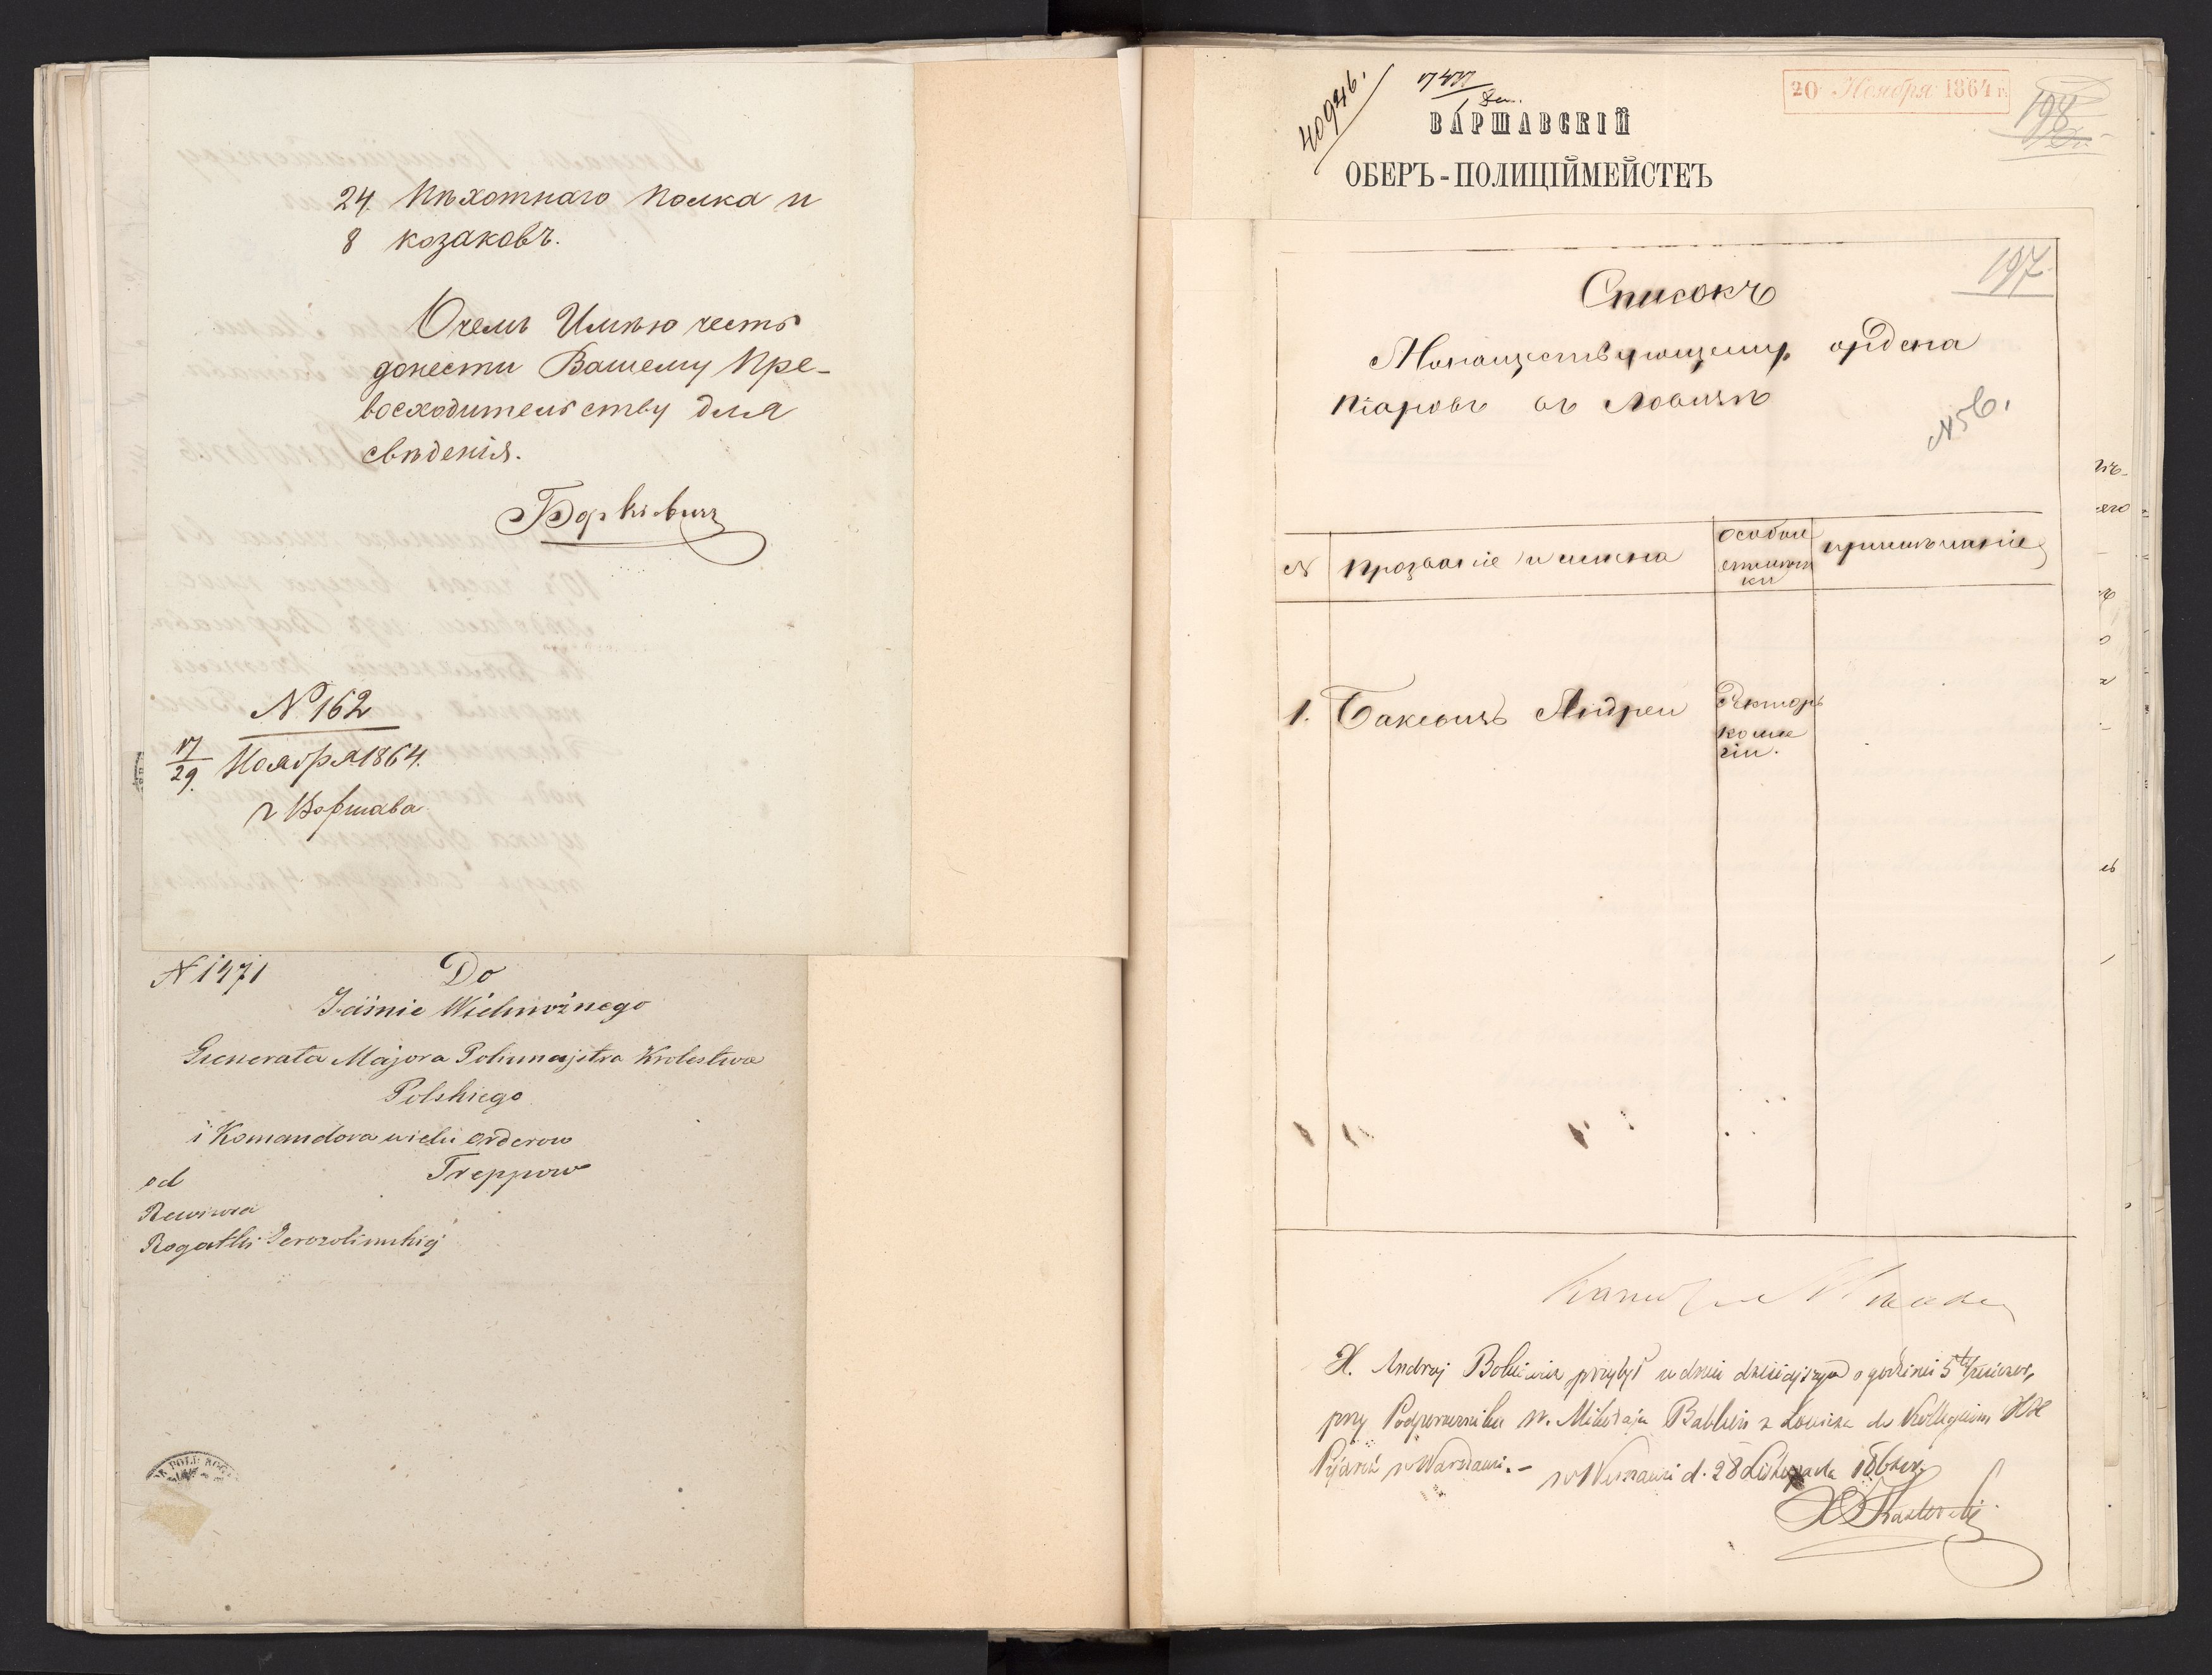 24. Пѣхотнаго полка и
8 козаковъ.
Очемъ Имѣю честь
донести Вашему Пре-
восходительству для
свѣденія.
№ 162
17/29 Ноября 1864.
г Варшава
N 1471
Do
Jaśnie Wielmożnego
Generała Majora Policmajstra Krolestwa
Polskiego
i Komandora wielu orderow
Treppow
od
Rewizora
Rogatki Jerozolimskiej
40946.
20 Ноября 1864 г.
198
ВАРШАВСКІЙ
ОБЕРЪ-ПОЛИЦІЙМЕЙСТЕЪ
197
Списокъ
Монашествующему ордена
Піаровъ въ Ловичѣ
N 56.
N Прозваніе и имена особые отмѣтки примѣчаніе
1. Бакевичъ Андреи Ректоръ
колле
гіи.
X. Andrzej przybył w dniu dzisiejszym o godzinie 5tej
przy Podporuczniku W. Mikołaju z Łowicza do Kollegium XX
Pijarów w Warszawie. – w Warszawie d. 28 Listopada 1864 r.